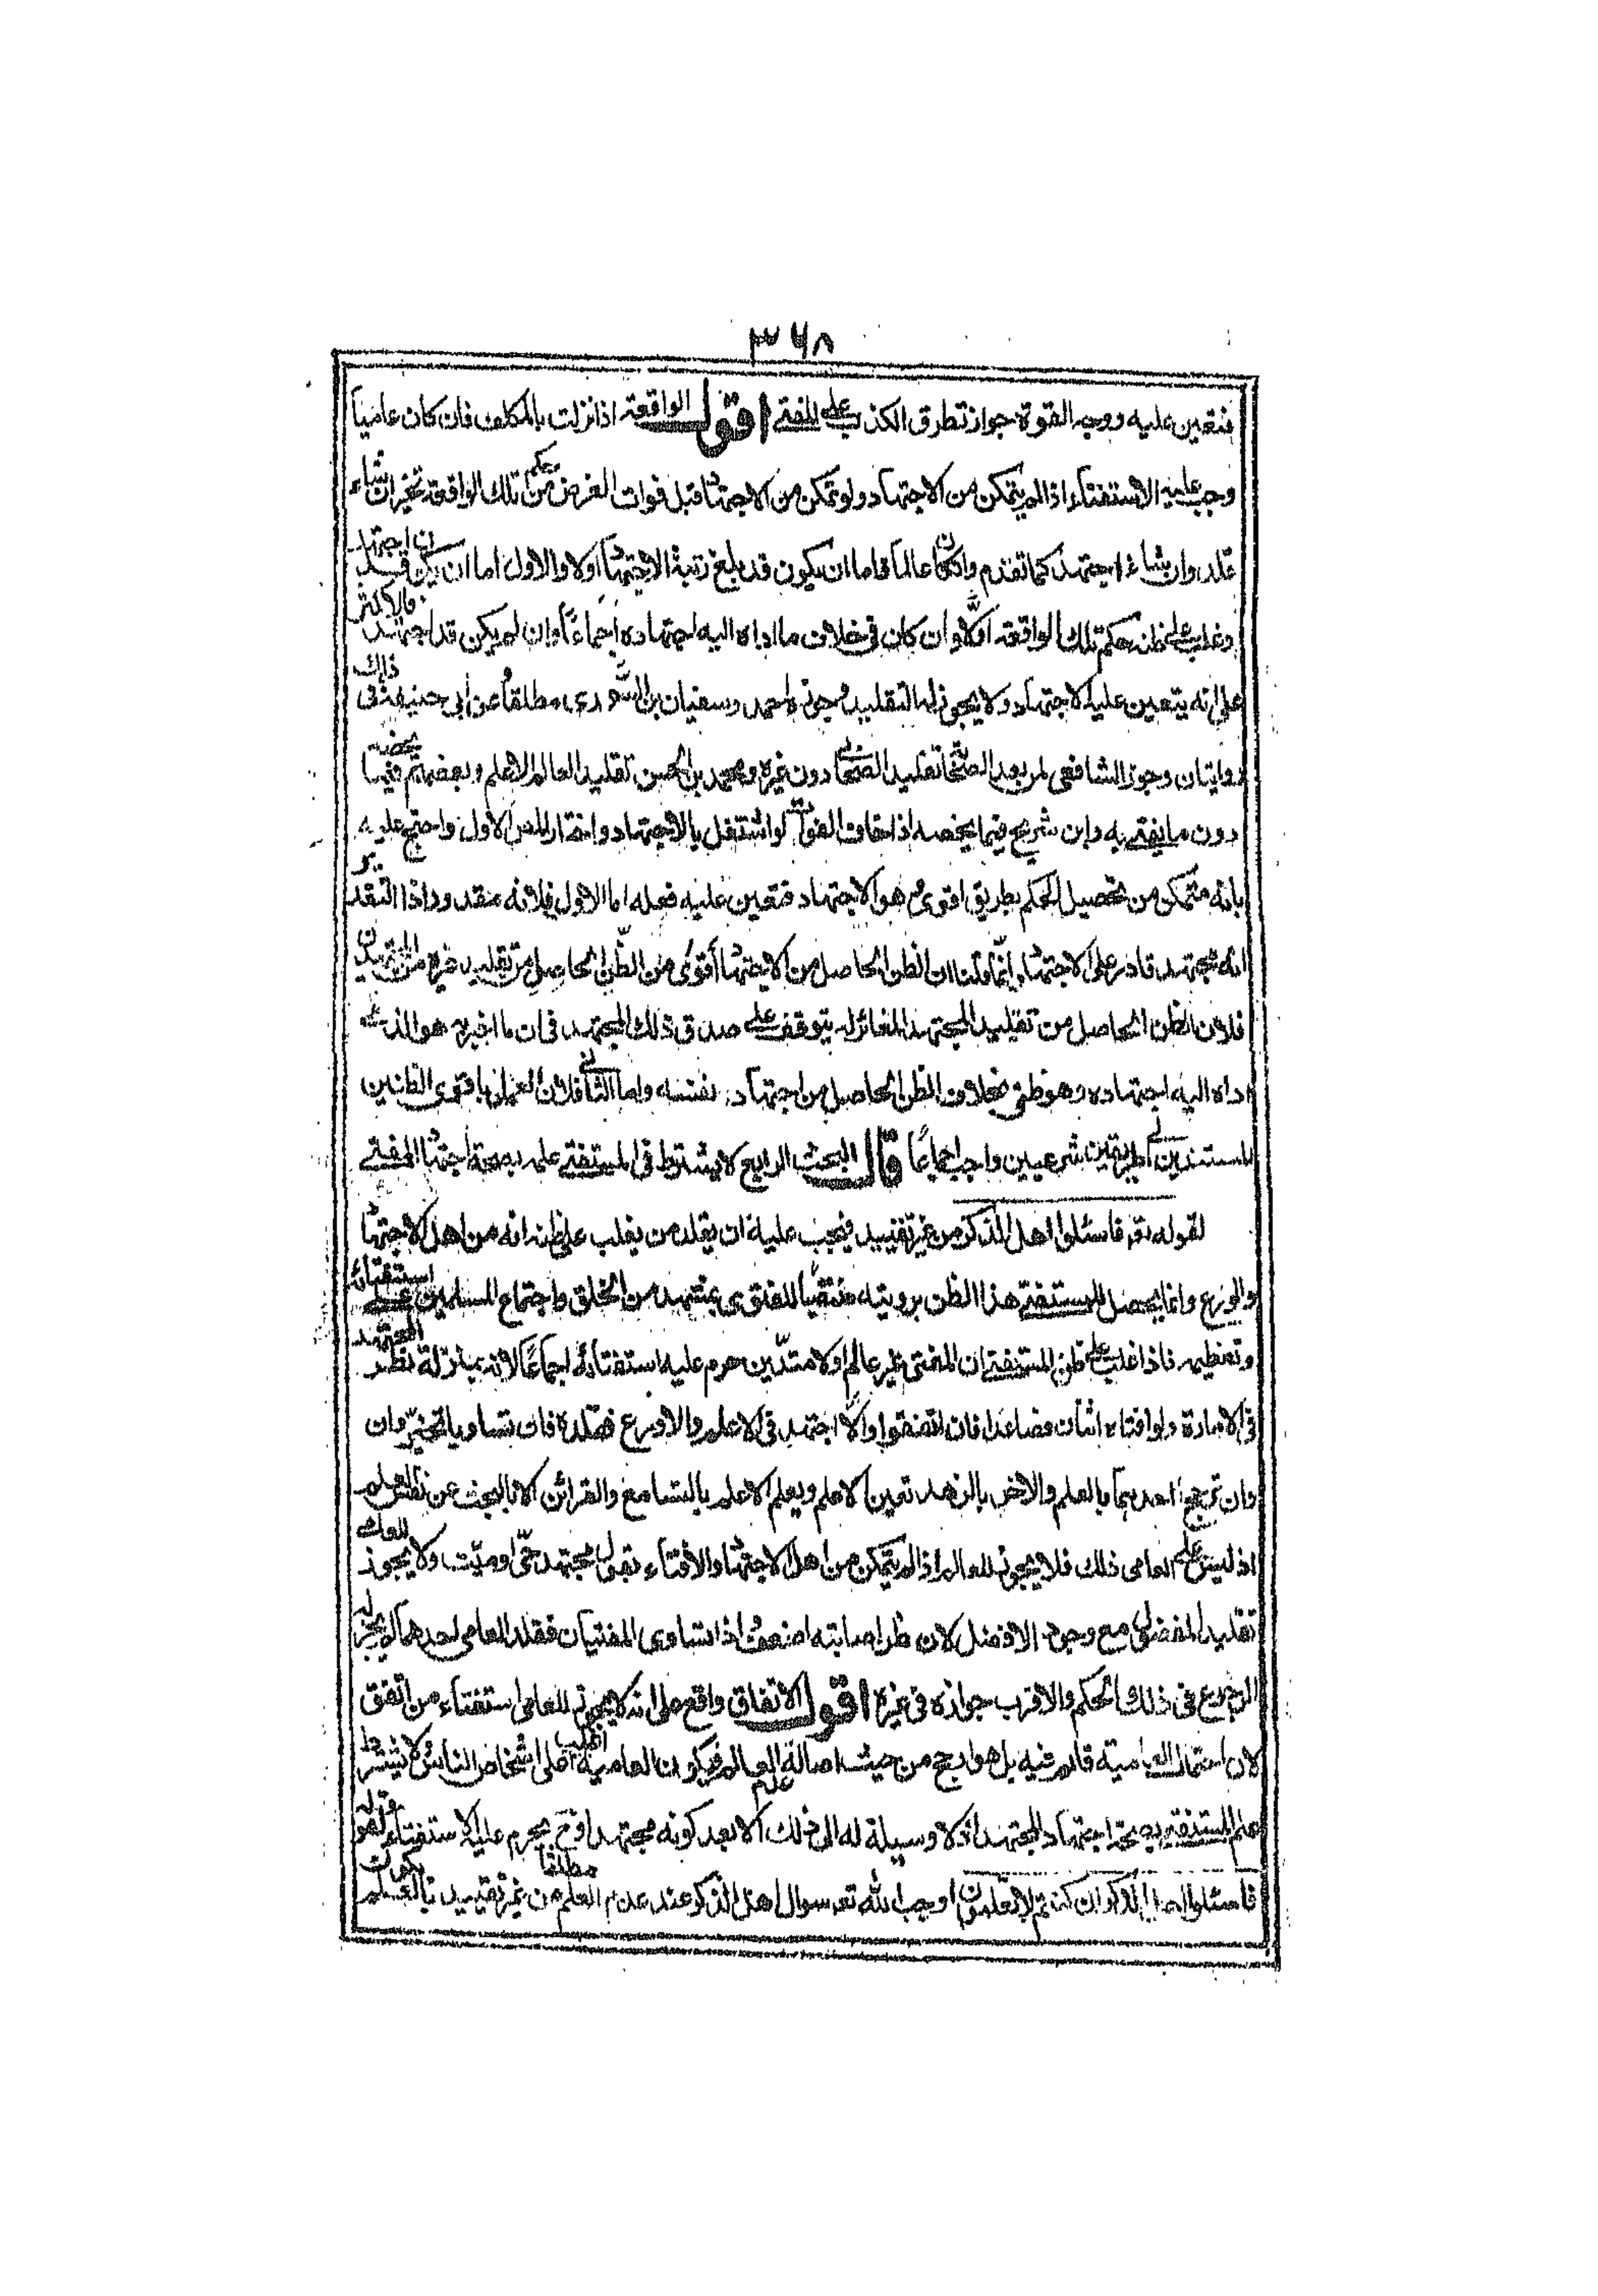 ٣٦٨
فتعين عليه ووجه القوة جواز تطرق الكذب على المفتي اقول الواقعة اذا نزلت بالمكلف فان كان عاميا
وجب عليه الاستفتاء اذا لم يتمكن من الاجتهاد ولو تمكن من الاجتهاد قبل فوات الغرض من حكم تلك الواقعة تخير ان شاء
قلد وان شاء اجتهد كما تقدم وان كان عالما فاما ان يكون قد بلغ رتبة الاجتهاد اولا والاول اما ان يكون قد اجتهد
وغلب على ظنه حكم تلك الواقعة اولا وان كان في خلاف ما اداه اليه اجتهاده اجماعا وان لم يكن قد اجتهد فالاكثر
على انه يتعين عليه الاجتهاد ولا يجوز له التقليد وجوزه احمد وسفيان بن الثوري مطلقا وعن ابي حنيفة في ذلك
روايتان وجوز الشافعي لمن بعد الصحابة تقليد الصحابي دون غيره ومحمد بن الحسن تقليد العالم الاعلم وبعضهم فيما يخصه
دون ما يفتي به وابن شريح فيما يخصه اذا خاف الفوات لو اشتغل بالاجتهاد واختار المص الاول واحتج عليه
بانه متمكن من تحصيل الحكم بطريق اقوى هو الاجتهاد فتعين عليه فعله اما الاول فلانه مقدور اذ التقدير
انه مجتهد قادر على الاجتهاد وانما قلنا ان الظن الحاصل من الاجتهاد أقوى من الظن الحاصل من تقليد غيره من المجتهدين
فلان الظن الحاصل من تقليد المجتهد المغائر له يتوقف على صدق ذلك المجتهد في ان ما اخبر به هو الذي
اداه اليه اجتهاده وهو ظني بخلاف الظن الحاصل من اجتهاد نفسه واما الثاني فلان العمل باقوى الظنين
المستندين الى طريقين شرعيين واجب اجماعا قال البحث الرابع لا يشترط في المستفتي علمه بصحة اجتهاد المفتي
لقوله تع فاسئلوا اهل الذكر من غير تقييد فيجب عليه ان يقلد من يغلب على ظنه انه من اهل الاجتهاد
والورع وانما يحصل للمستفتي هذا الظن برويته منتصبا للفتوى بمشهد من الخلق واجتماع المسلمين على استفتائه
وتعظيمه فاذا غلب على ظن المستفتي ان المفتي غير عالم او لا متدين حرم عليه استفتائه اجماعا لانه بمنزلة نظر المجتهد
في الامارة ولو افتاه اثنان فصاعدا فان اتفقوا والا اجتهد في الاعلم والاورع فقلده فان تساويا تخير وان
وان ترجح احدهما بالعلم والاخر بالزهد تعين الاعلم ويعلم الاعلم بالتسامع والقرائن لا بالبحث عن نفس العلم
اذ ليس على العامي ذلك فلا يجوز للعالم اذا لم يتمكن من اهل الاجتهاد والافتاء بقول مجتهد حي او ميت ولا يجوز للعامي
تقليد المفضول مع وجود الافضل لان ظن اصابته اضعف اذا تساوى المفتيان فقلد العامي احدهما لم يجز له
الرجوع في ذلك الحكم والاقرب جوازه في غيره اقول الاتفاق واقع على انه لا يجوز للعامي استفتاء من اتفق
لان احتمال العامية قائم فيه بل هو ارجح من حيث اصالة علم العالم فيكون العامية اغلب اشخاص الناس ولا يشترط
علم المستفتي بصحة اجتهاد المجتهد اذ لا وسيلة له الى ذلك الا بعد كونه مجتهدا وح يحرم عليه الاستفتاء لقوله
فاسئلوا اهل الذكر ان كنتم لا تعلمون اوجب الله تع سوال اهل الذكر عند عدم العلم مطلقا من غير تقييد بالعلم بكون